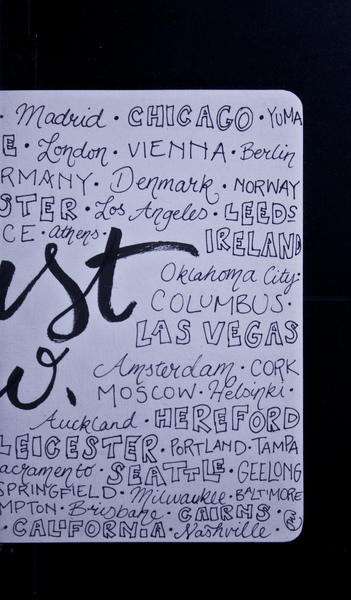 · Madrid · CHICAGO · YUMA
E · London · VIENNA · Berlin
RMANY · Denmark · NORWAY
STER · Los Angeles · LEEDS
CE · athens ·
IRELAND
ust
Oklahoma City ·
COLUMBUS ·
LAS VEGAS
w.
Amsterdam · CORK
MOSCOW · Helsinki ·
Auckland · HEREFORD
LEICESTER · PORTLAND · TAMPA
acramento · SEATTLE · GEELONG
SPRINGFIELD · Milwaukee · BALTIMORE
MPTON · Brisbane · CAIRNS ·
· CALIFORNIA · Nashville ·